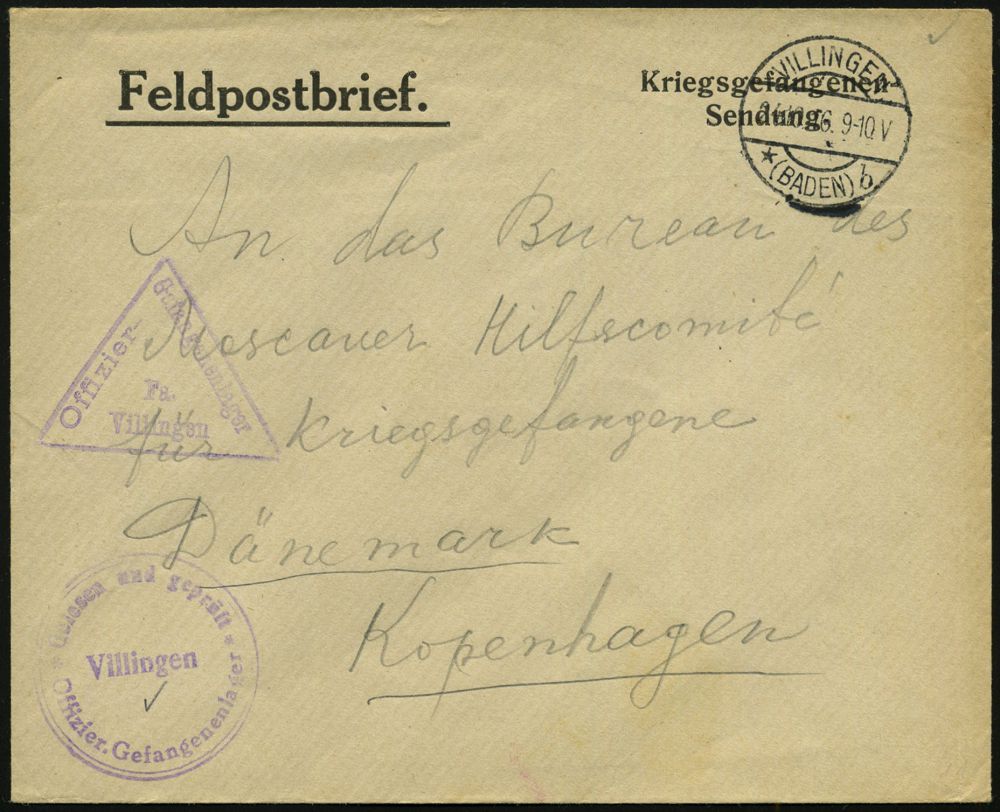 Feldpostbrief.
Kriegsgefangenen-
Sendung.
VILLINGEN
9-10 V
* (BADEN) b
An das Bureau des
Moscauer Hilfscomité
für Kriegsgefangene
Dänemark
Kopenhagen
Offizier-
Gefangenenlager
Fa.
Villingen
* Gelesen und geprüft *
Villingen
Offizier. Gefangenenlager